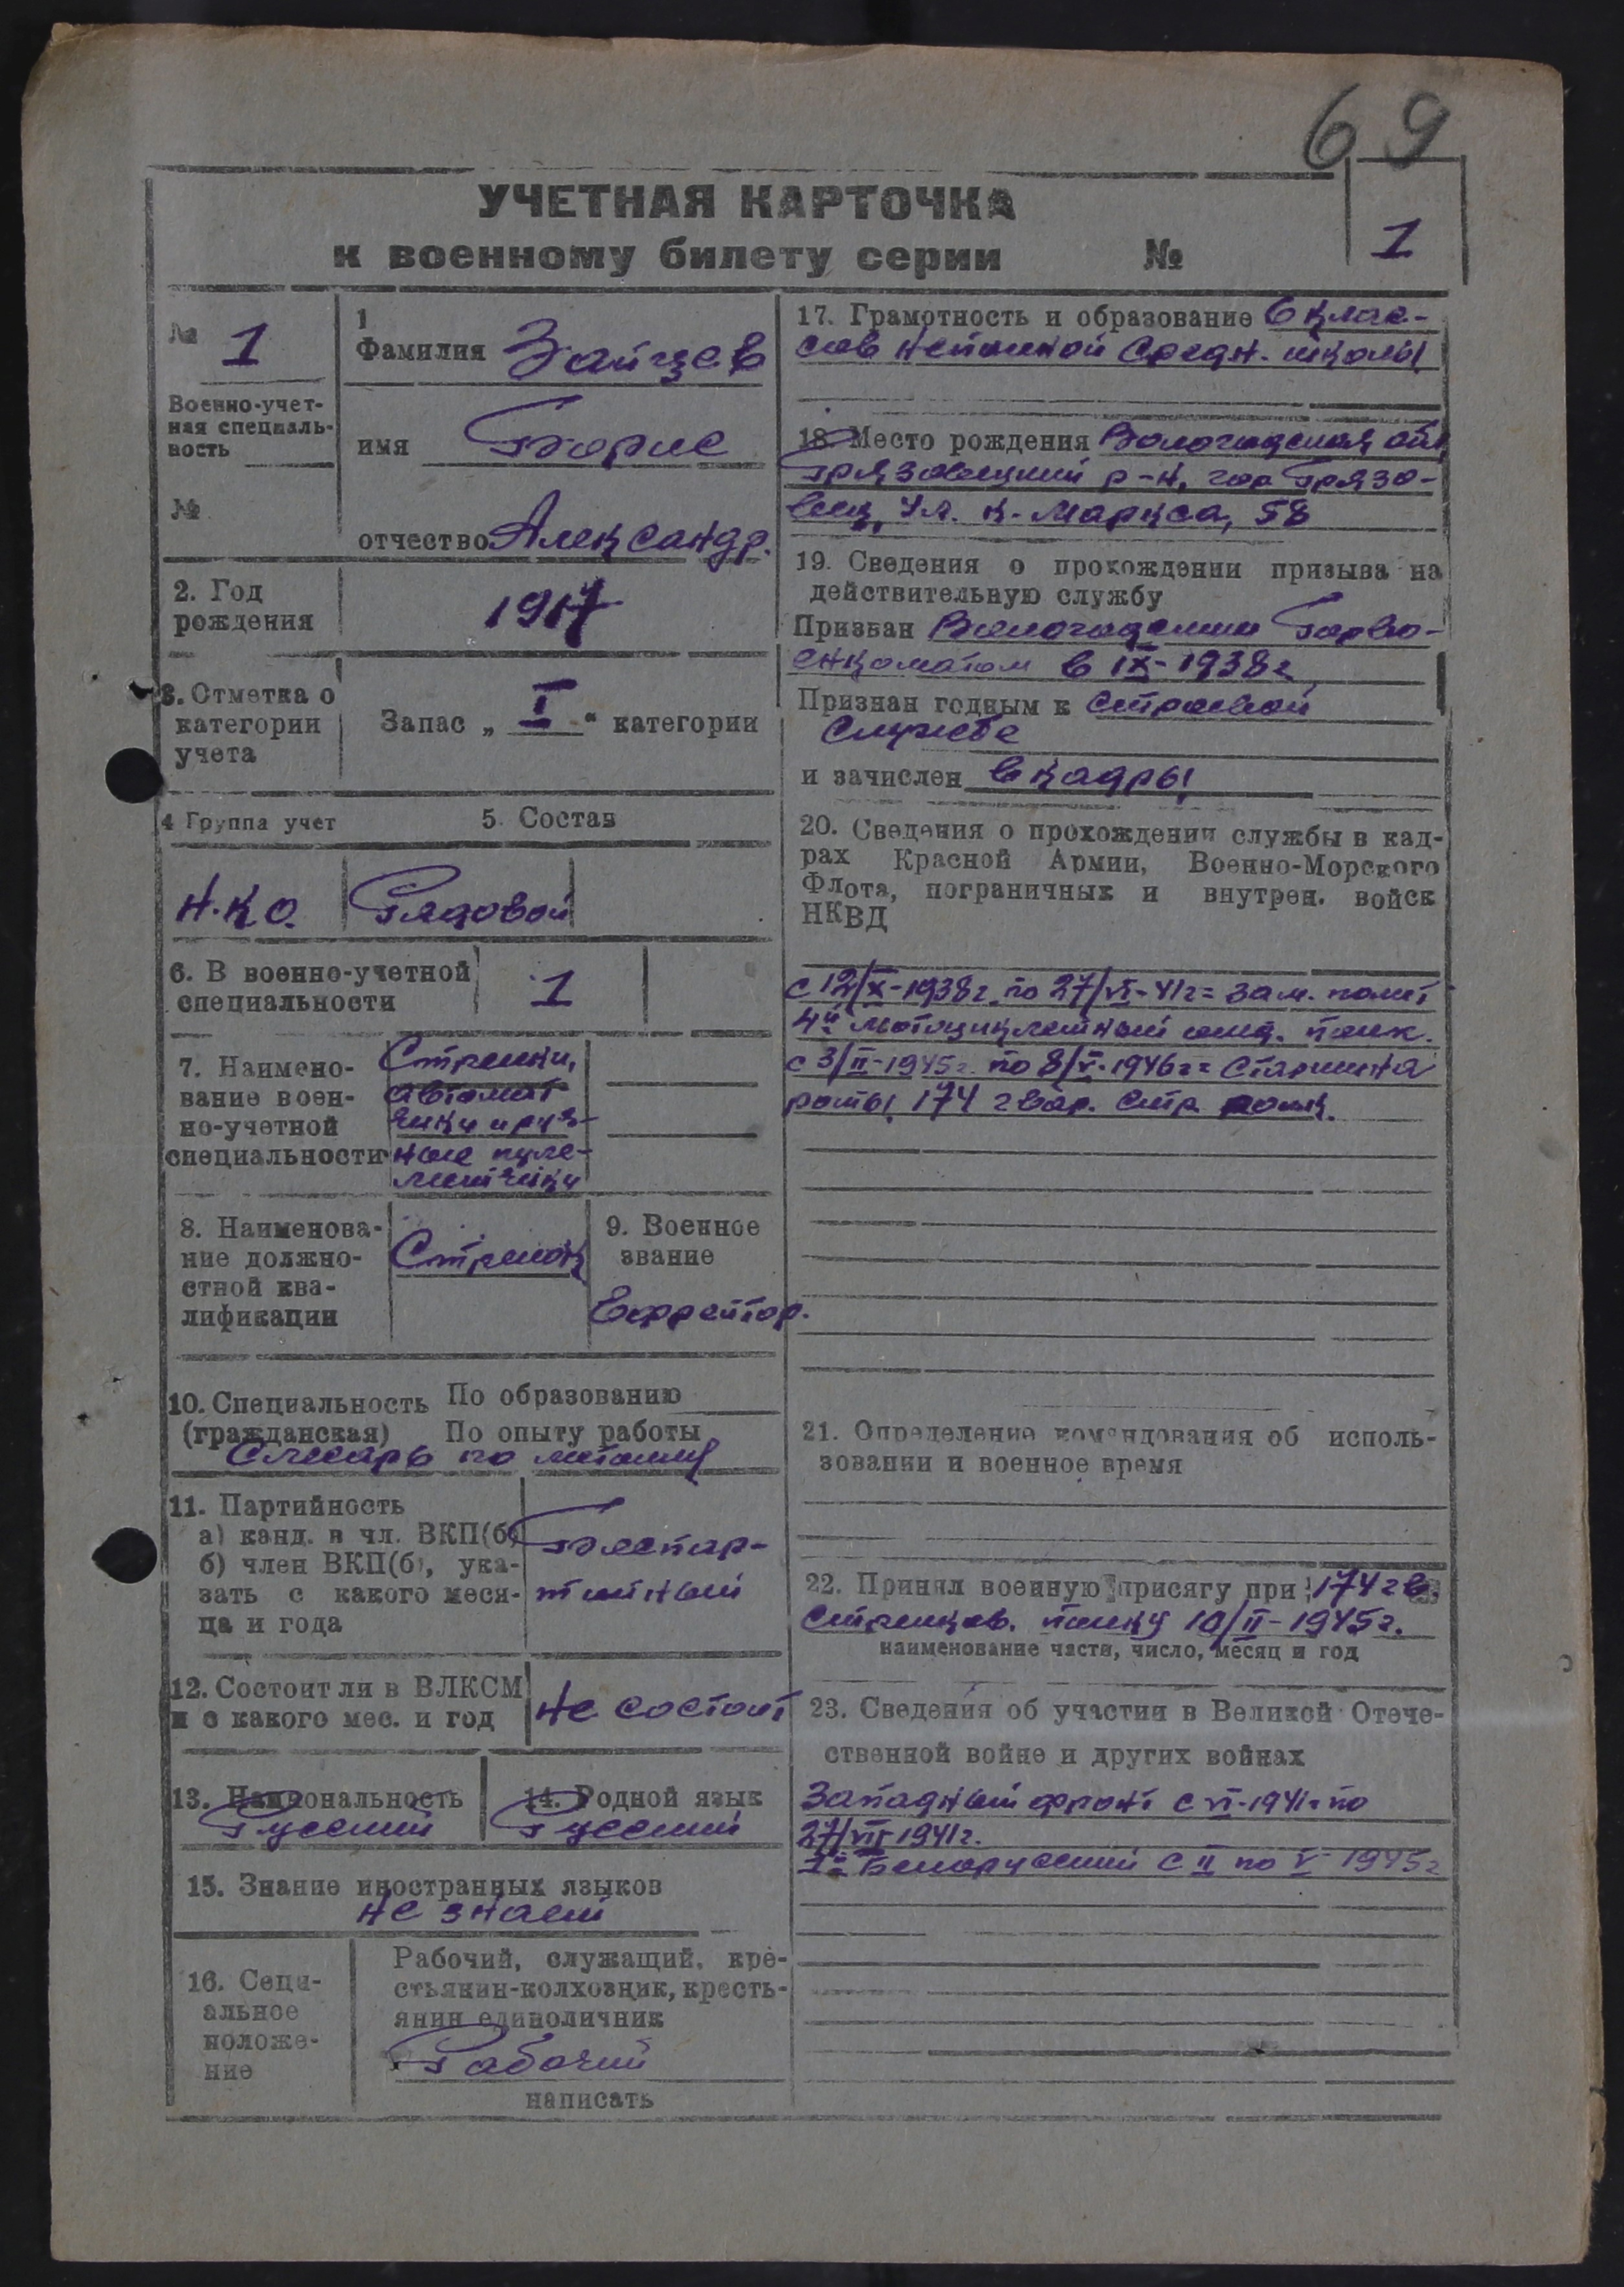 69
УЧЕТНАЯ КАРТОЧКА
к военному билету серии №
1
№ 1
Военно-учет-
ная специаль-
ность
№
1
Фамилия Зайцев
имя Борис
отчество Александр.
2. Год
рождения
1917
3. Отметка о
категории
учета
Запас „ I “ категории
4 Группа учет
5. Состав
Н.К.О.
Рядовой
6. В военно-учетной
специальности
1
7. Наимено-
вание воен-
но-учетной
специальности
Стрелки,
автомат
чики и руч-
ные пуле-
метчики
8. Наименова-
ние должно-
стной ква-
лификации
Стрелок
9. Военное
звание
Ефрейтор.
10. Специальность По образованию
(гражданская) По опыту работы
Слесарь по металлу
11. Партийность
а) канд. в чл. ВКП(б)
б) член ВКП(б), ука-
зать с какого меся-
ца и года
Беспар-
тийный
12. Состоит ли в ВЛКСМ
и с какого мес. и год
не состоит
13. Национальность
Русский
14. Родной язык
Русский
15. Знание иностранных языков
не знает
16. Соци-
альное
положе-
ние
Рабочий, служащий, кре-
стьянин-колхозник, кресть-
янин единоличник
Рабочий
написать
17. Грамотность и образование 6 клас-
сов неполной средн. школы
18. Место рождения Вологодская обл
Грязовецкий р-н, гор Грязо-
вец, ул. К-Маркса, 58
19. Сведения о прохождении призыва на
действительную службу
Призван Вологодским Горво-
енкоматом в IX-1938г
Признан годным к строевой
службе
и зачислен в кадры
20. Сведения о прохождении службы в кад-
рах Красной Армии, Военно-Морского
Флота, пограничных и внутрен. войск
НКВД
с 12/X-1938г. по 27/VI-41г = зам. полит
4й мотоциклетный полк.
с 3/II-1945г. по 8/V-1946г = Старшина
роты 174 гвар. стр. полк.
21. Определение командования об исполь-
зовании и военное время
22. Принял военную присягу при 174 гв.
стрелков. полку 10/II-1945г.
наименование части, число, месяц и год
23. Сведения об участии в Великой Отече-
ственной войне и других войнах
Западный фронт с VI-1941г по
27/VII 1941г.
1й Белорусский с II по V 1945г